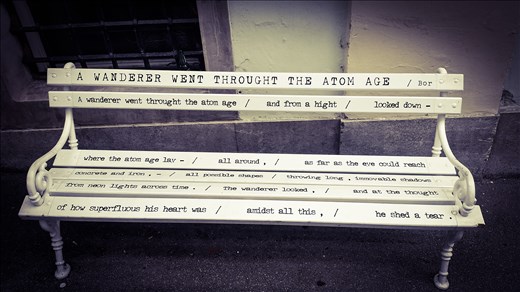 A WANDERER WENT THROUGHT THE ATOM AGE / Bor
A wanderer went throught the atom age / and from a hight / looked down -
where the atom age lay - / all around, / as far as the eye could reach
concrete and iron, - / all possible shapes / throwing long, immovable shadows
from neon lights across time. / The wanderer looked, / and at the thought
of how superfluous his heart was / amidst all this, / he shed a tear